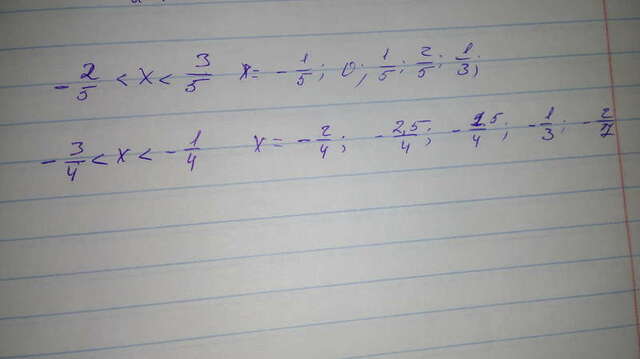 -2/5 < x < 3/5 x = -1/5; 0; 1/5; 2/5; 1/3;
-3/4 < x < -1/4 x = -2/4; -2,5/4; -1,5/4; -1/3; -2/7